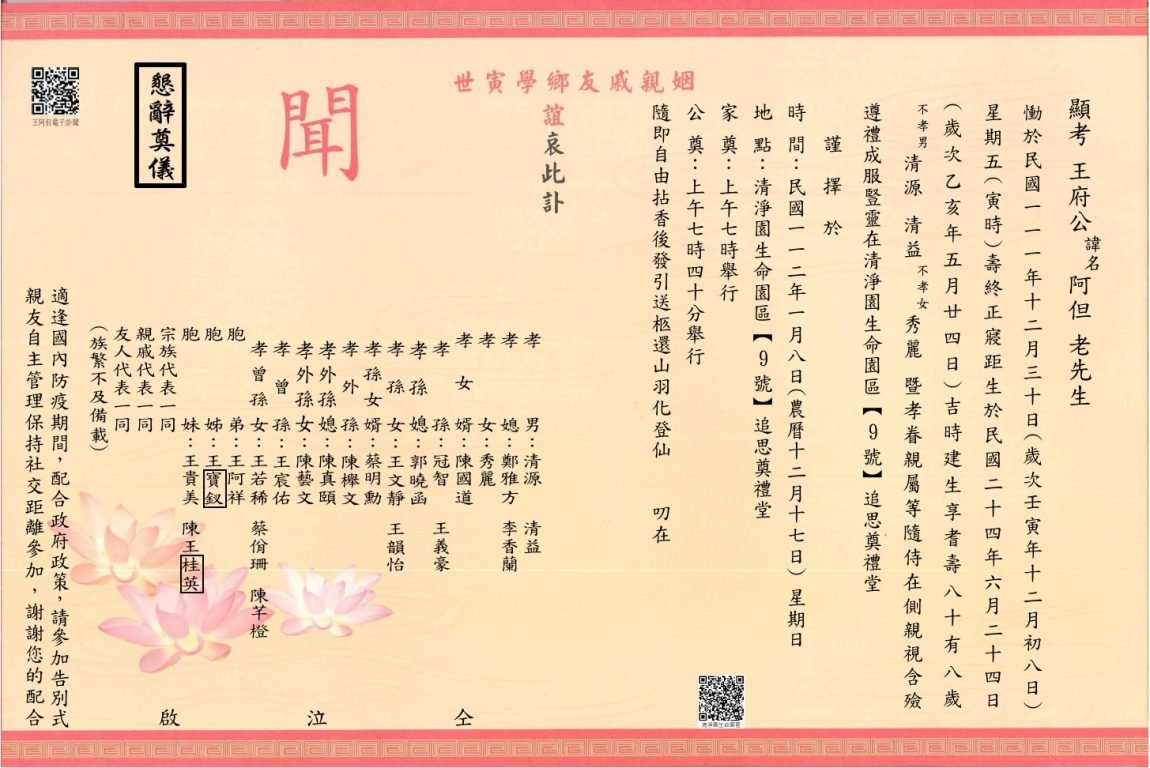 顯考 王府公諱名阿但 老先生
慟於民國一一一年十二月三十日(歲次壬寅年十二月初八日)
星期五(寅時)壽終正寢距生於民國二十四年六月二十四日
(歲次乙亥年五月廿四日)吉時建生享耆壽八十有八歲
不孝男清源 清益不孝女秀麗 暨孝眷親屬等隨侍在側親視含殮
遵禮成服豎靈在清淨園生命園區【9號】追思奠禮堂
謹擇於
時 間:民國一一二年一月八日(農曆十二月十七日)星期日
地 點:清淨園生命園區【9號】追思奠禮堂
家 奠:上午七時舉行
公 奠:上午七時四十分舉行
隨即自由拈香後發引送柩還山羽化登仙 叨在
姻親戚友鄉學寅世
誼哀此訃
聞
孝男:清源 清益
孝媳:鄭雅方 李香蘭
孝女:秀麗
孝孫:冠智 王義豪
孝女婿:陳國道
孝孫媳:郭曉函
孝孫女:王文靜 王韻怡
孝孫女婿:蔡明勳
孝外孫:陳櫸文
孝外孫媳:陳真頤
孝外孫女:陳藝文
孝曾孫:王宸佑
孝曾孫女:王若稀 蔡佾珊 陳芊橙
胞弟:王阿祥
胞姊:王寶釵
胞妹:王貴美 陳王桂英
宗族代表一同
親戚代表一同
友人代表一同
(族繁不及備載)
仝 泣 啟
懇辭奠儀
王阿但電子訃聞
適逢國內防疫期間,配合政府政策,請參加告別式
親友自主管理保持社交距離參加,謝謝您的配合